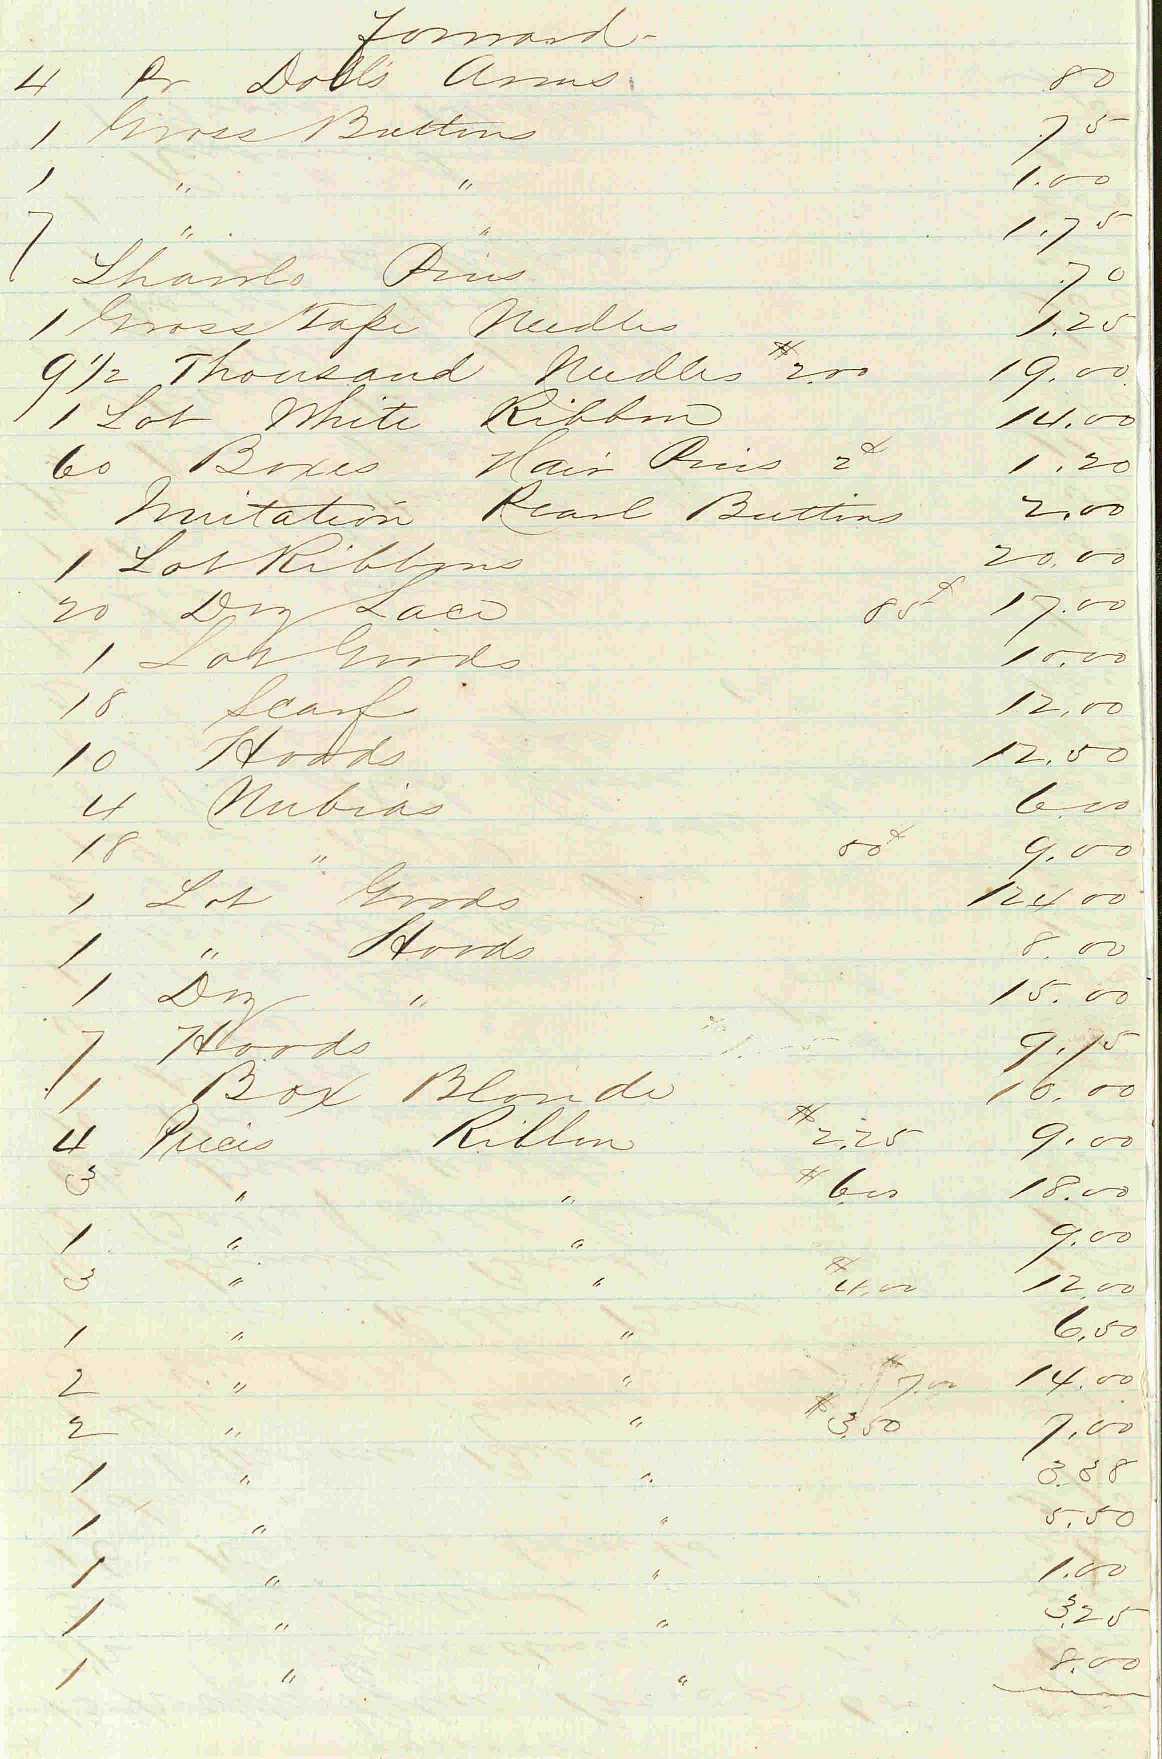 Forward -
4 Pr Dolls Arms 80
1 Gross Buttons .75
1 " " 1.00
7 " " 1.75
Shawls Pins .70
1 Gross Tape Needles 1.25
9 1/2 Thousand Needles $2.00 19.00
1 Lot White Ribbon 14.00
60 Boxes Hair Pins 2¢ 1.20
Imitation Pearl Buttons 2.00
1 Lot Ribbons 20.00
20 Doz Lace 85¢ 17.00
1 Lot Goods 10.00
18 Scarf 12.00
10 Hoods 12.50
4 Nubias 6.00
18 " 50¢ 9.00
1 Lot Goods 124.00
1 " Hoods 8.00
1 Doz " 15.00
7 Hoods
1 Box Blonde 10.00
4 Pieces Ribbon $2.25 9.00
3 " " $6.00 18.00
1 " " 9.00
3 " " $4.00 12.00
1 " " 6.50
2 " " $7.00 14.00
2 " " $3.50 7.00
1 " " 3.38
1 " " 5.50
1 " " 1.00
1 " " 3.25
1 " " 8.00